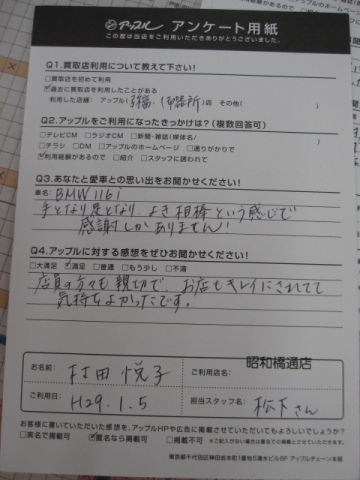 アップル アンケート用紙
この度は当店をご利用いただきありがとうございました。
Q1.買取店利用について教えて下さい!
□買取店を初めて利用
☑過去に買取店を利用したことがある
利用した店舗: アップル( )店 その他( )
Q2.アップルをご利用になったきっかけは?(複数回答可)
□テレビCM □ラジオCM □新聞・雑誌(媒体名/ )
□チラシ □DM □アップルのホームページ □通りがかりで
☑利用経験があるので □紹介 □スタッフに誘われて
Q3.あなたと愛車との思い出をお聞かせください!
車名: BMW116i
手となり足となり、よき相棒という感じで
感謝しかありません!
Q4.アップルに対する感想をぜひお聞かせください!
□大満足 ☑満足 □普通 □もう少し □不満
店員の方々も親切で、お店もキレイにされてて
気持ちよかったです。
お名前: 村田悦子
ご利用店名: 昭和橋通店
ご利用日: H29.1.5
担当スタッフ名: 松下さん
お客様に書いていただいた感想を、アップルHPや広告に掲載させていただいてもよろしいでしょうか?
□実名で掲載可 ☑匿名なら掲載可 □掲載不可 ※ご記入がない場合は匿名での掲載とさせていただきます。
東京都千代田区神田岩本町1番地5清水ビル6F アップルチェーン本部